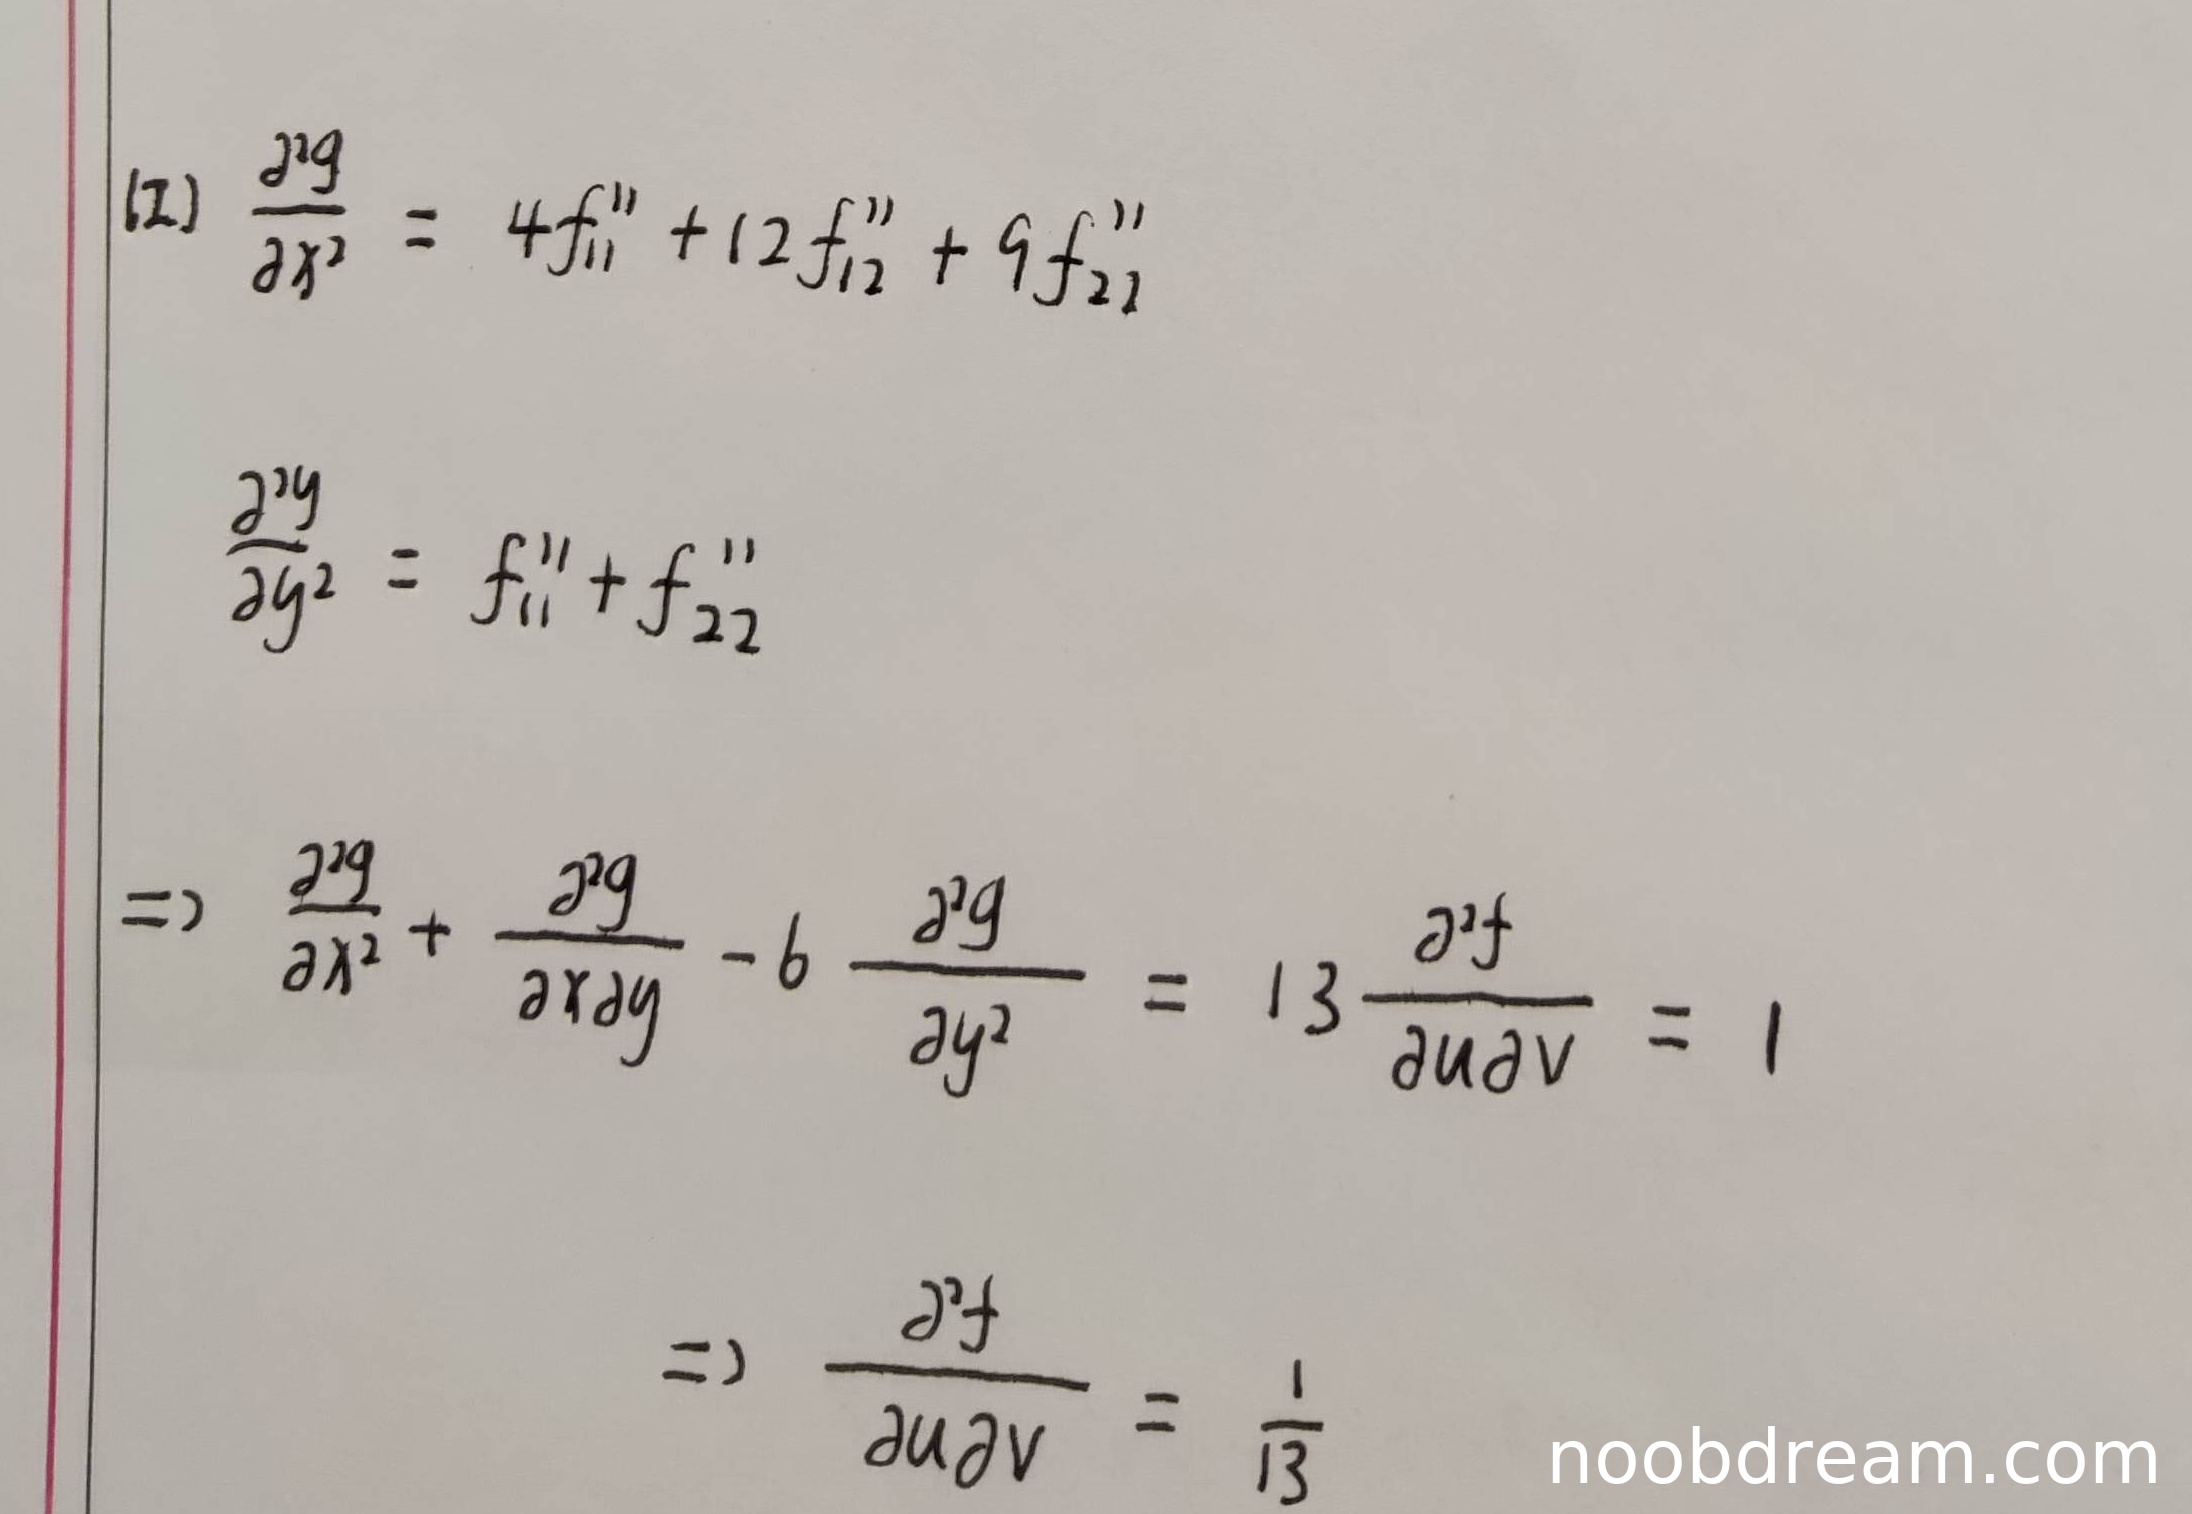 (I) ∂²g/∂x² = 4f₁₁'' + 12f₁₂'' + 9f₂₂''
∂²y/∂y² = f₁₁'' + f₂₂''
=> ∂²g/∂x² + ∂²g/∂x∂y - 6 ∂²g/∂y² = 13 ∂²f/∂u∂v = 1
=> ∂²f/∂u∂v = 1/13
noobdream.com